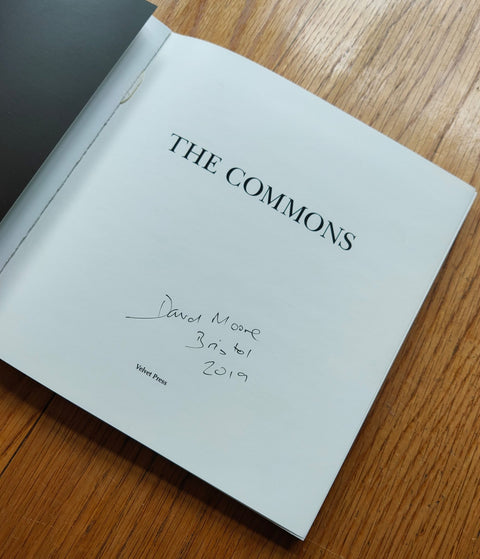 THE COMMONS
David Moore
Bristol
2019
Velvet Press